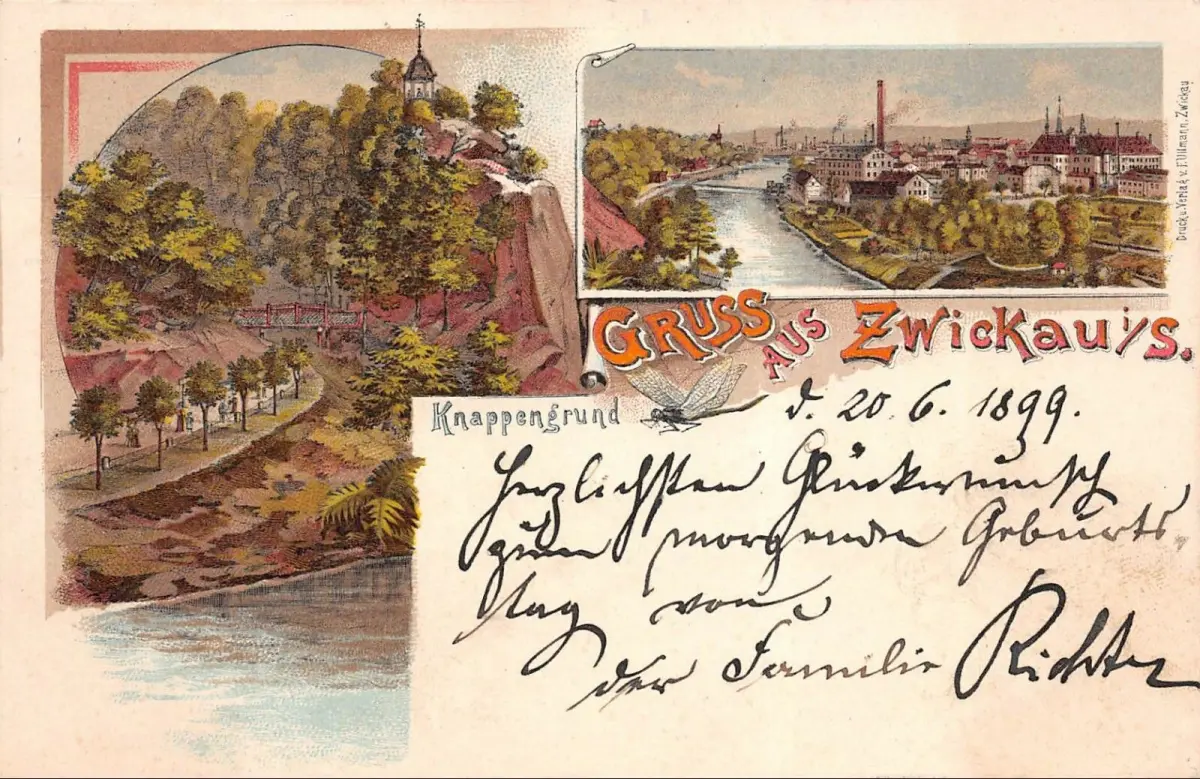 Druck u. Verlag v. F. Ullmann, Zwickau
GRUSS AUS ZWICKAU i/S.
Knappengrund
d. 20. 6. 1899.
Herzlichsten Glückwunsch
zum morgenden Geburts
tag von
der Familie Richter